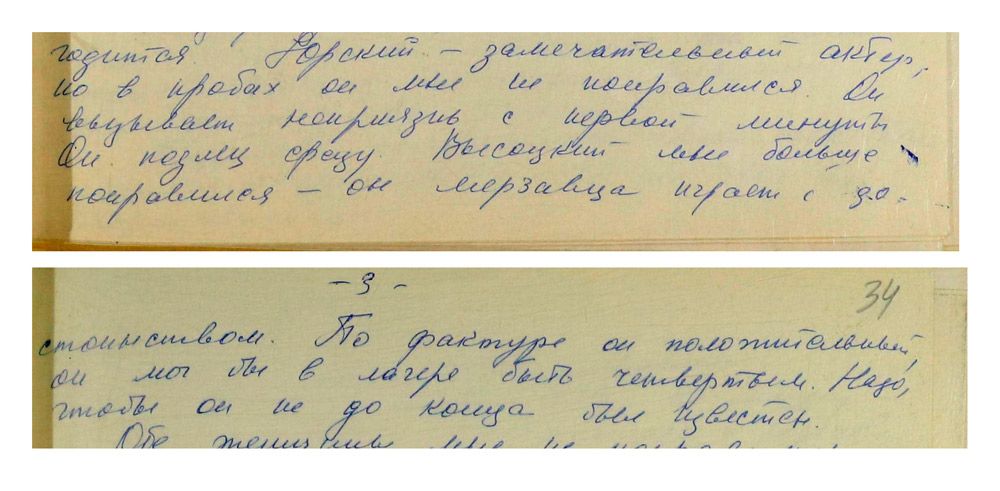 годится. Юрский – замечательный актер,
но в пробах он мне не понравился. Он
вызывает неприязнь с первой минуты
Он подлец сразу. Высоцкий мне больше
понравился – он мерзавца играет с до-
– 3 –
34
стоинством. По фактуре он положительный,
он мог бы в лагере быть четвертым. Надо,
чтобы он не до конца был известен.
Обе женщины мне не